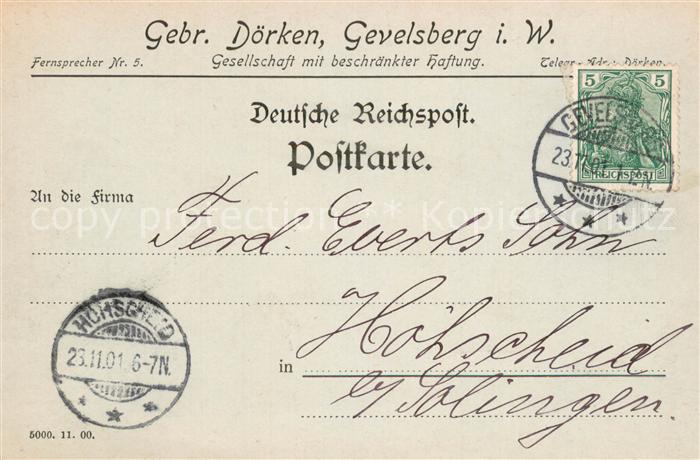 Gebr. Dörken, Gevelsberg i. W.
Fernsprecher Nr. 5. Gesellschaft mit beschränkter Haftung. Telegr.-Adr.: Dörken.
5 5
REICHSPOST
GEVELSB
23.11.01
Deutsche Reichspost.
Postkarte.
An die Firma
Ferd. Everts Sohn
HÖHSCHEID
23.11.01 6-7N.
in Höhscheid
b/ Solingen.
5000. 11. 00.
copy protection * Kopierschutz